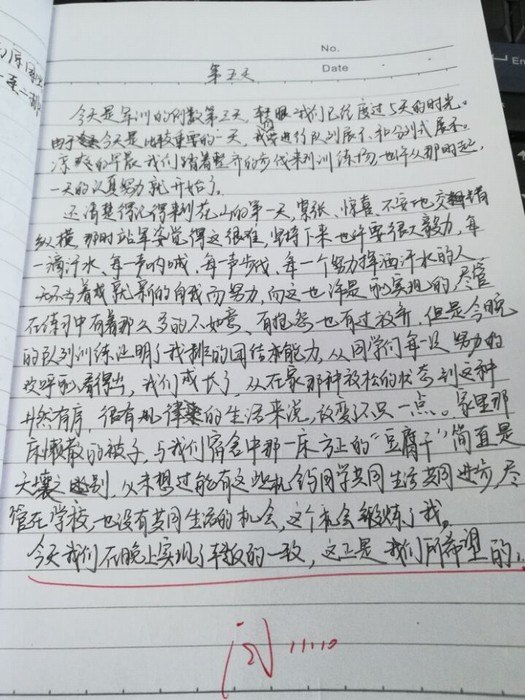 No.
Date
第五天
今天是军训的倒数第五天，转眼我们已经度过5天的时光。
由于今天是比较重要的一天，我要进行队列展示和分列式展示。
凉爽的早晨，我们踏着整齐的步伐来到训练场，也许从那时起，
一天的认真努力就开始了。
还清楚得记得来到在山的第一天，紧张、惊喜、不安地交错
纵横，那时站军姿觉得这很难，坚持下来也许要很大毅力，每
一滴汗水、每一声呐喊、每一声步伐、每一个努力挥洒汗水的人，
无不为着成就新的自我而努力，而这也许是的，尽管
在练习中有着那么多的不如意，有抱怨也有过放弃，但是今晚
的队列训练证明了我排的团结和能力，从同学们每一足努力的
呼看得出，我们成长了，从在家那种放松的状态到这种
井然有序，很有规律的生活来说，改变不只一点。家里那
床懒散的被子，与我们宿舍中那一床方正的“豆腐干”简直是
天壤之别，从未想过能有这些机会与同学共同生活共同进步，尽
管在学校，也没有共同生活的机会，这个机会锻炼了我。
今天我们在晚上实现了转板的一致，这正是我们所希望的。
阅 11110
En